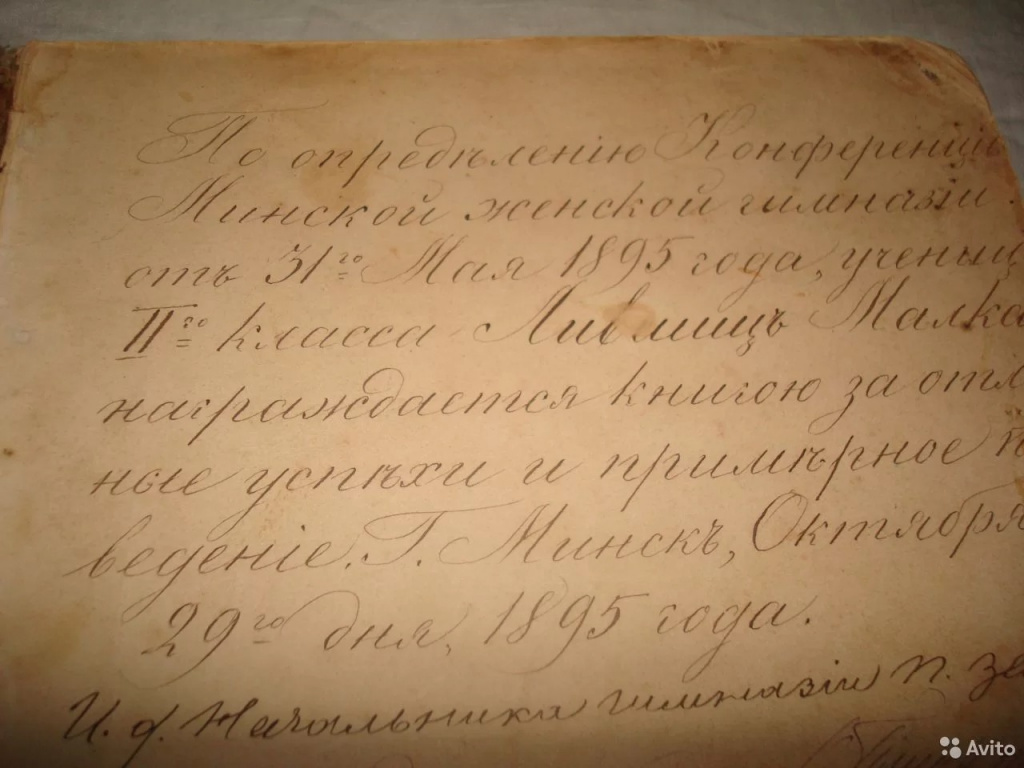 По опредѣленію Конференціи
Минской женской гимназіи
отъ 31го Мая 1895 года, учениц
IIго класса Лившицъ Малка
награждается книгою за отл
ные успѣхи и примѣрное п
веденіе. Г. Минскъ, Октября
29го дня, 1895 года.
И. д. Начальника гимназіи П.
Avito